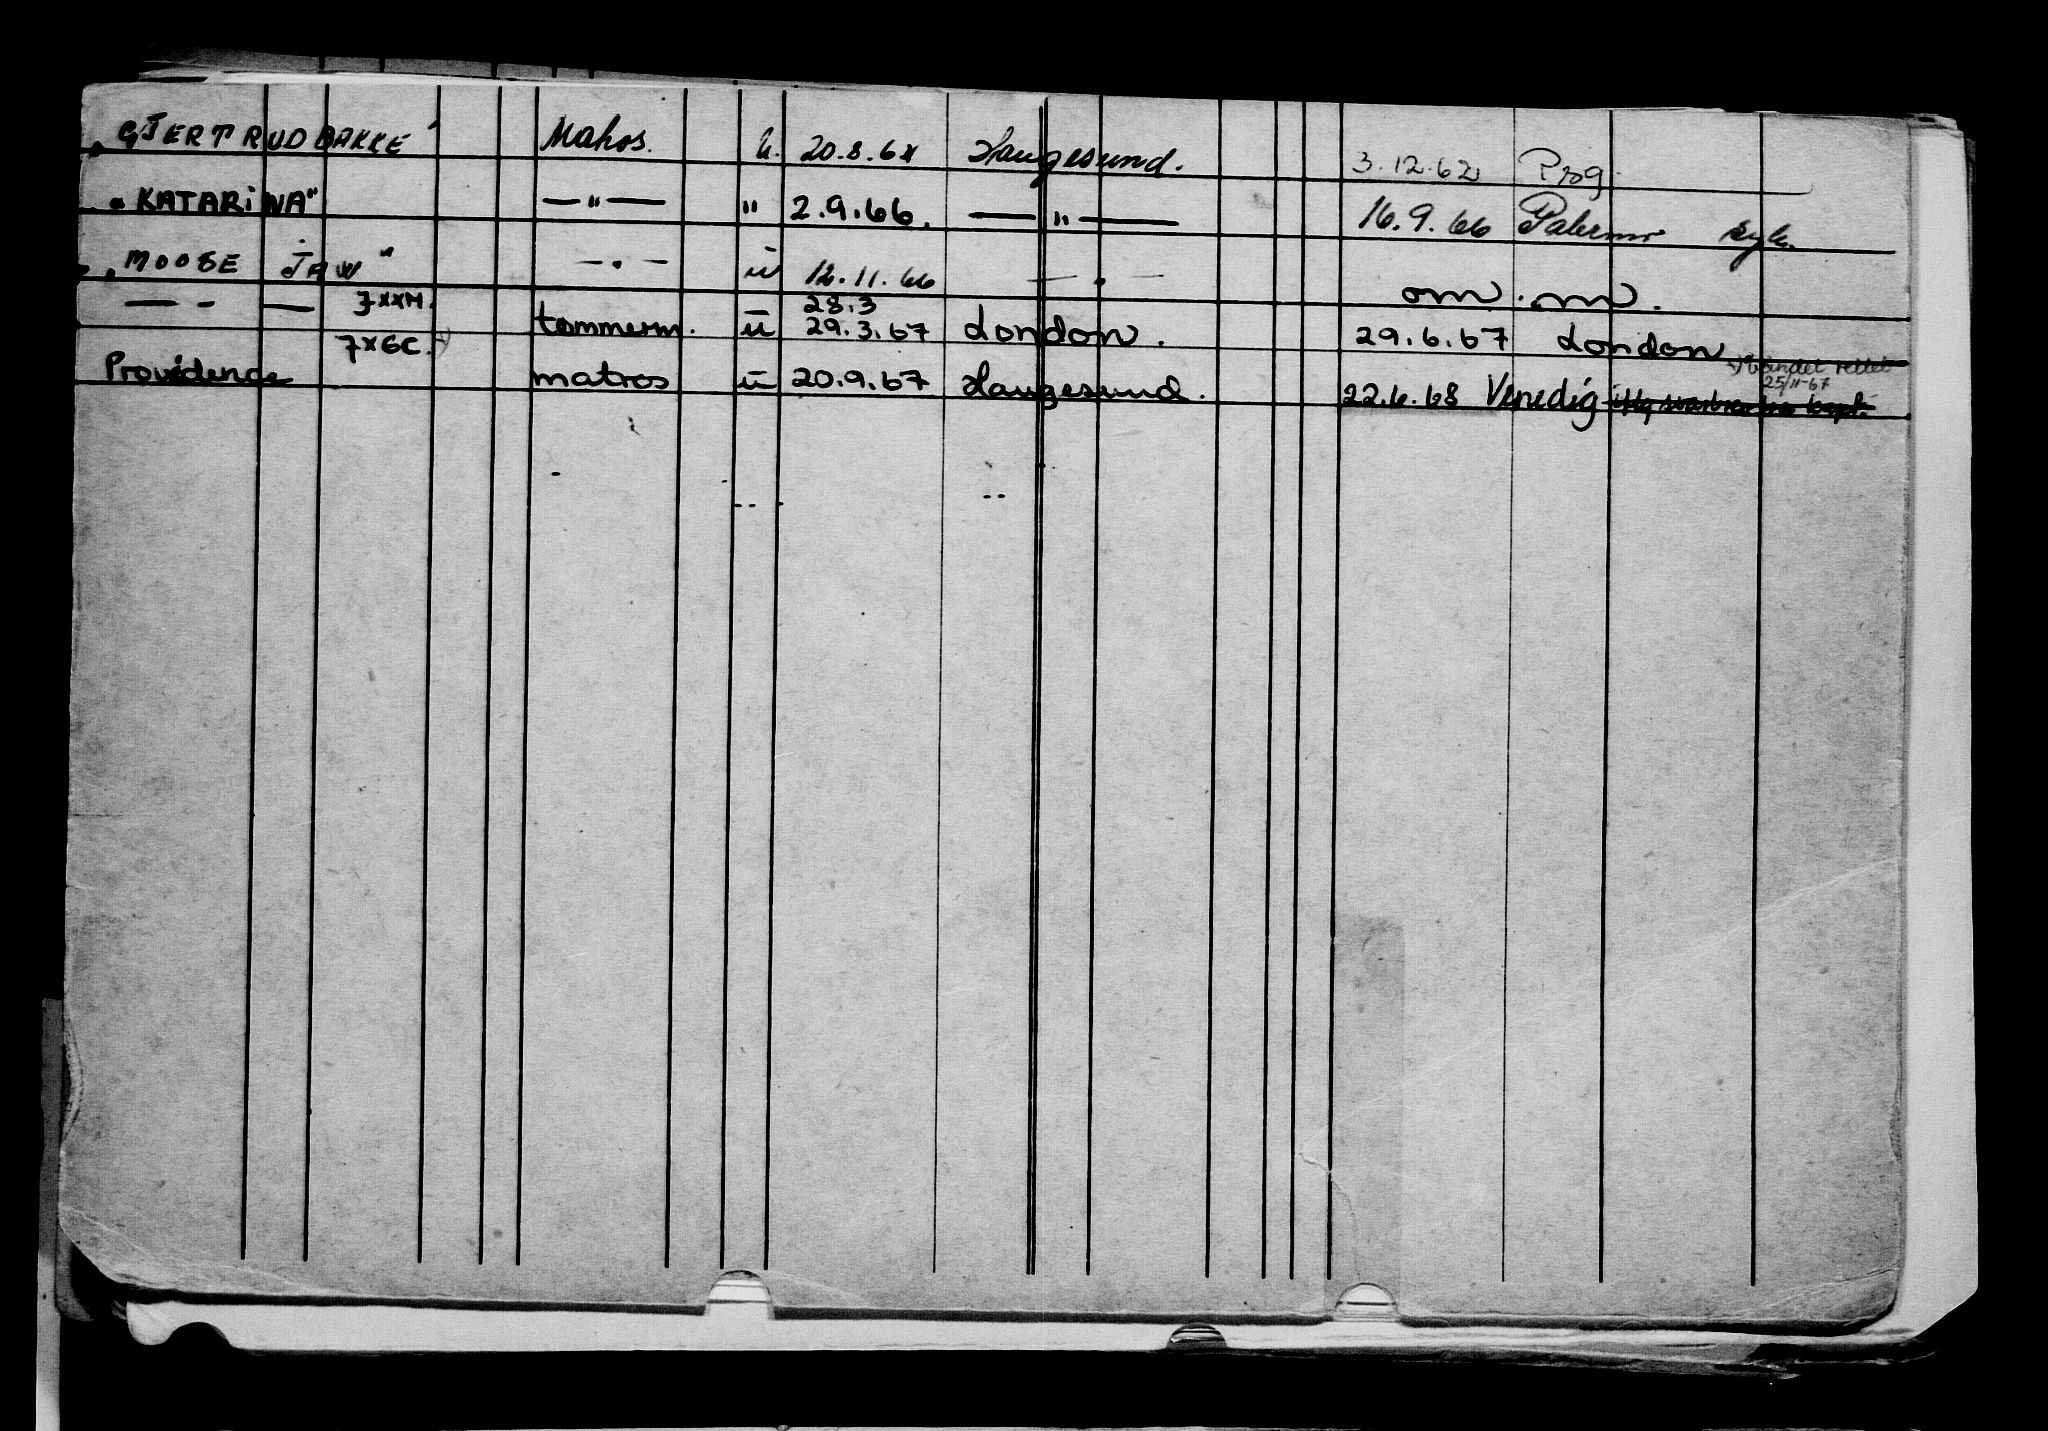 "GJERTRUD BAKKE" Matros. U. 20.8.62 Haugesund. 3.12.62 Prg.
"KATARINA" — " — " 2.9.66. — " — 16.9.66 Palermo syk.
"MOOSE JAW" — " — ü 12.11.66 — " — om. m.
— " — 7xxM. tømmerm. ü 28.3 29.3.67 London. 29.6.67 London
Providence 7xGC. matros ü 20.9.67 Haugesund. 22.6.68 Venedig
rettet 25/11-67